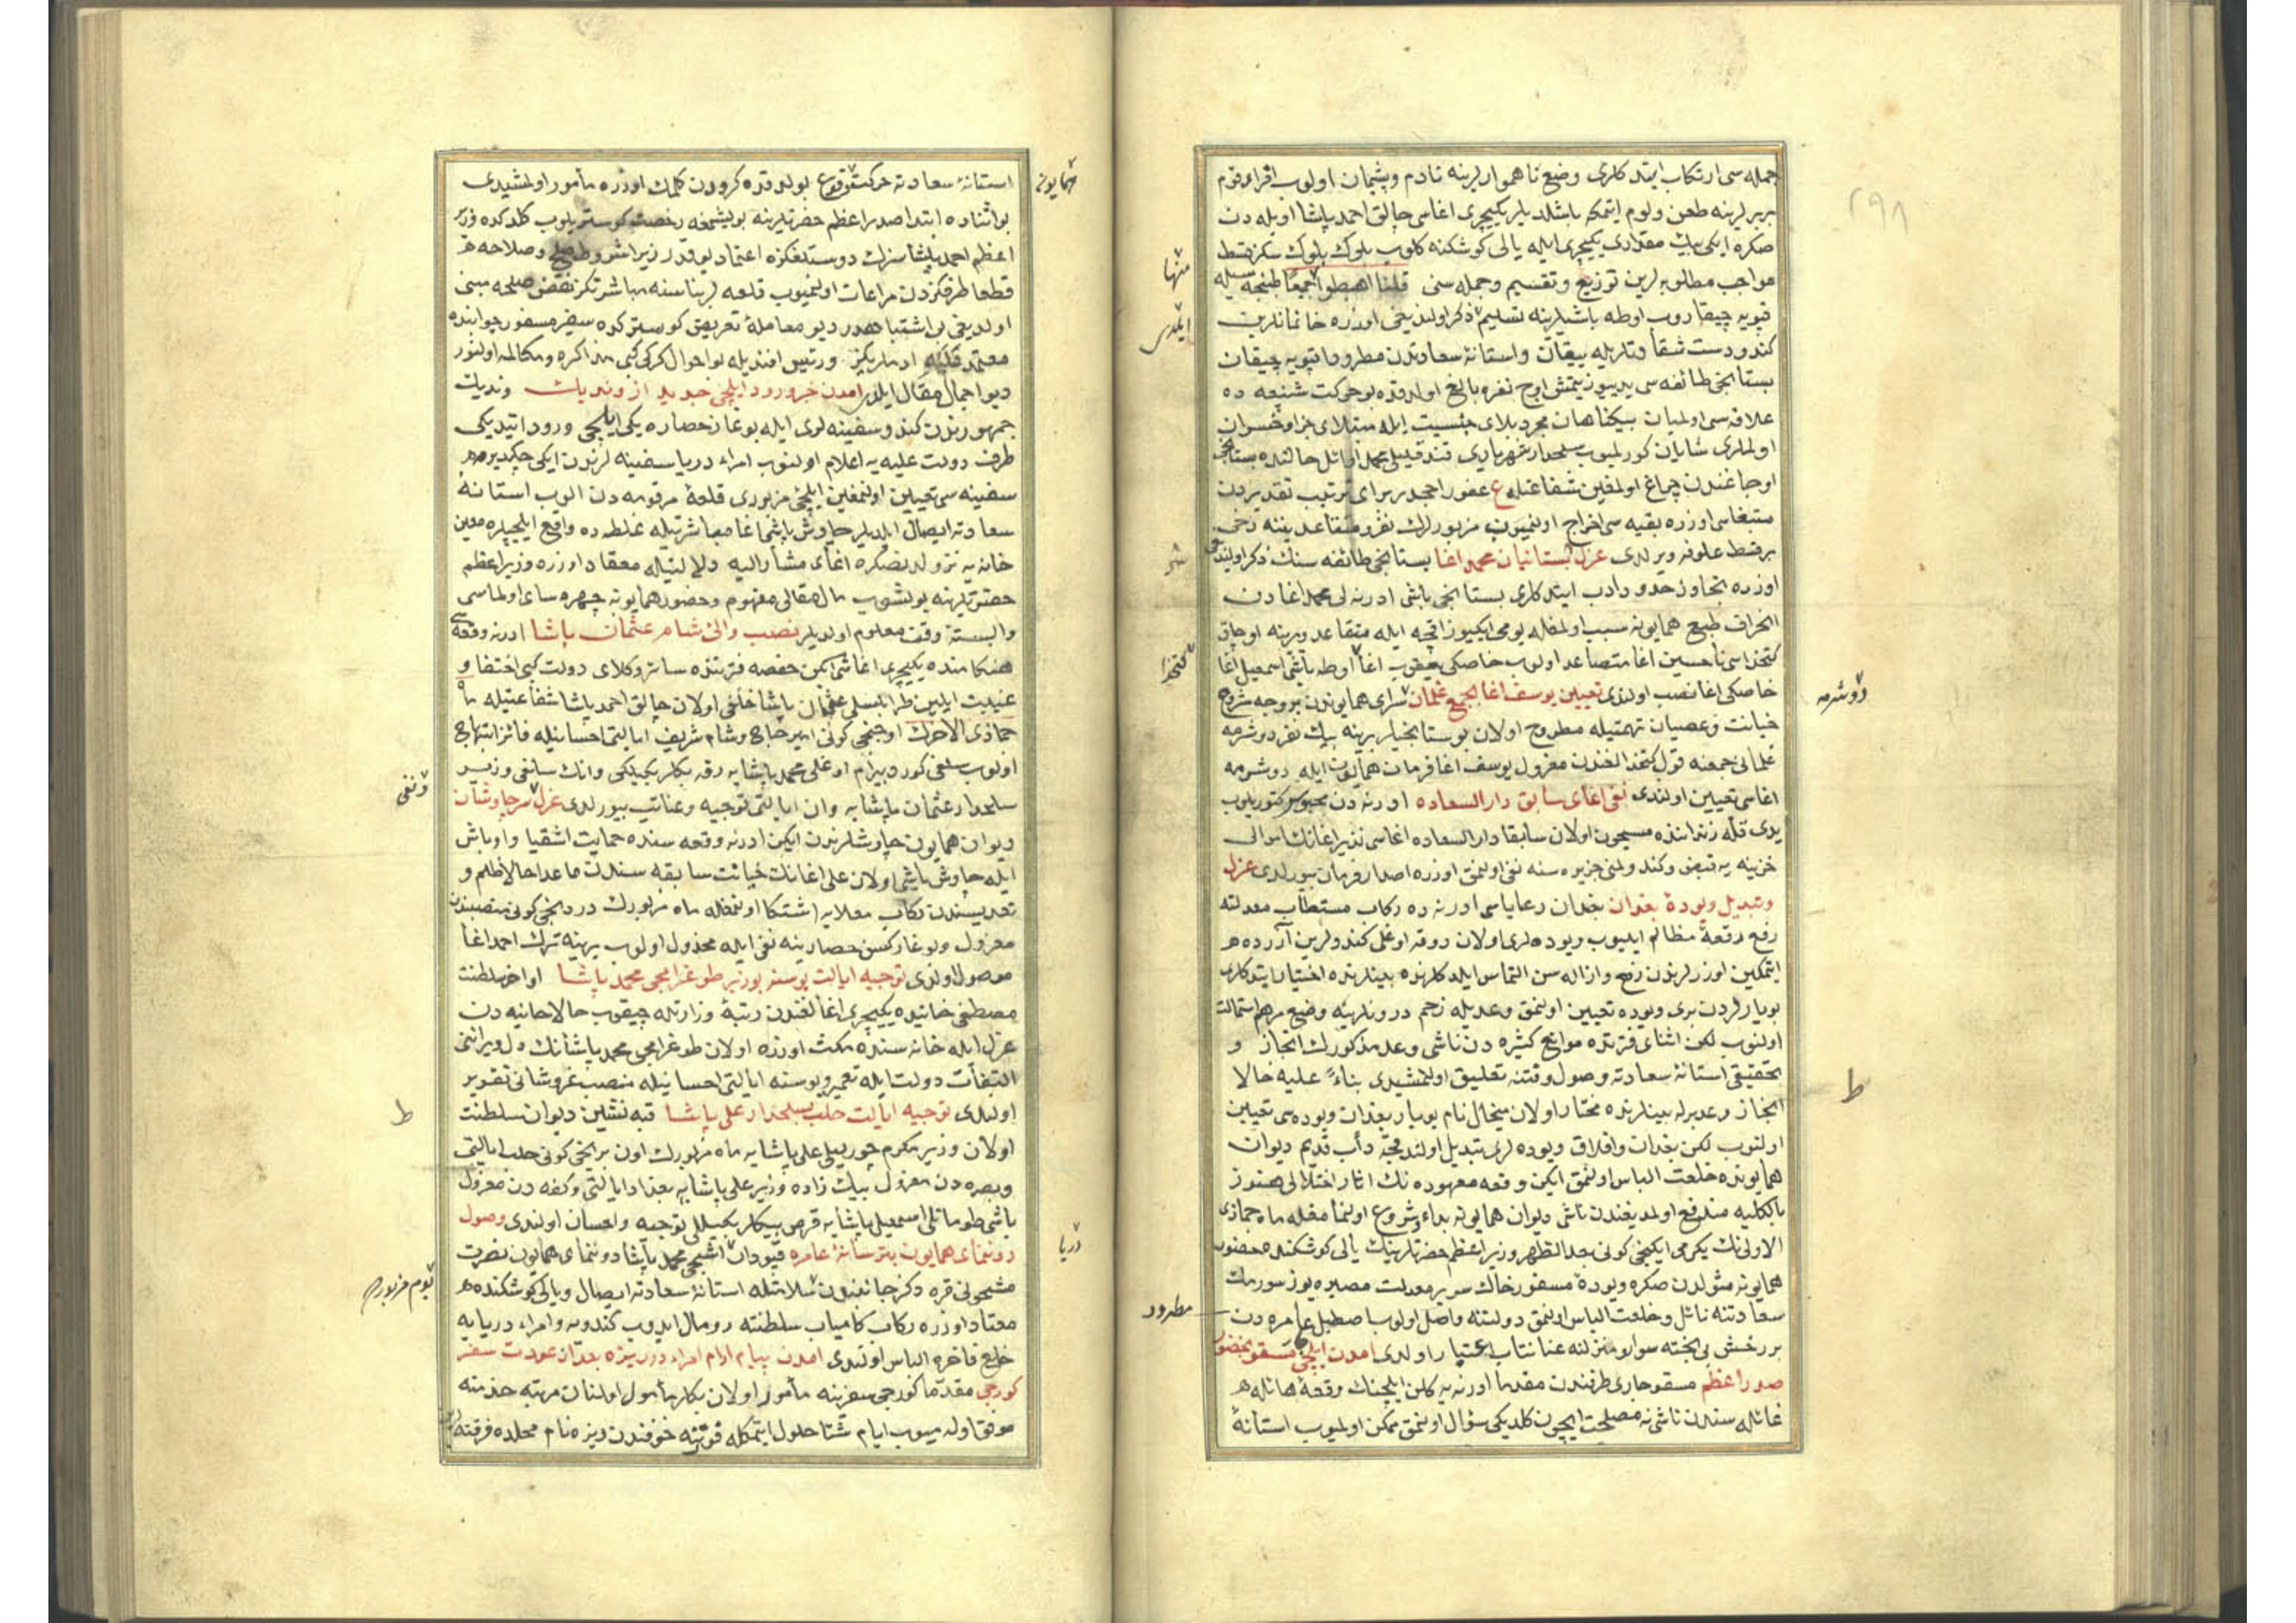 ٢٩٨
جمله سی ارتکاب ایتدکلری وضع ناهموارلرینه نادم و پشیمان اولوب
بربرلرینه طعن ولوم ایتمکه باشلدیلر یکیچری اغاسی چالق احمد پاشا اویله دن
صکره ایکی بیك مقداری یکیچری ایله یالی کوشکنه کلوب بلوك بلوك سکز قسط
منها
مواجب مطلوبه لرین توزیع وتقسیم وجمله سنی قلنا اهبطوا جمیعا
ایلدی
قپویه چیقاروب اوطه باشیلرینه تسلیم ذکر اولندیغی اوزره خانمانلرین
کندو دست شقاوتلریله ییقان واستانهٔ سعادتدن مطرودا قپویه چیقان
بستانجی طائفه سی یدییوز یتمش اوچ نفره بالغ اولوقده بو حرکت شنیعه ده
علاقه سی اولمیان بیکناهان مجرد بلای جنسیت ایله مبتلای جزا وخسران
اولملری شایان کورلمیوب سلحدار شهریاری اوائل حالنده بستانجی
اوجاغندن چراغ اولمغین شفاعتله ع عفو ترتیب تقدیردن
مستبغاسی اوزره بقیه سی اخراج اولنمیوب مزبورلرك نفر ومتقاعدینه دخی
شر
بر قسط علوفه ویرلدی عزل بستانیان محمد اغا بستانجی طائفه سنك ذکر اولندیغی
اوزره تجاوز حدود ادب ایتدکلری بستانجی باشی ادرنه لی محمد اغادن
انحراف طبع همایونه سبب اولمغله یومی ایکیوز اقچه ایله متقاعد ویرینه اوجاق
کتخدا
کتخداسی حسین اغا متصاعد اولوب خاصکی یعقوب اغا اوطه باشی اسمعیل اغا
دوشرمه
خاصکی اغا نصب اولندی تعیین یوسف اغا لجمع غلمان سرای همایوندن بر وجه مشروح
خیانت وعصیان تهمتیله مطروح اولان بوستانجیلر یرینه بیك نفر دوشرمه
غلمانی جمعنه قول کتخدالغندن معزول یوسف اغا فرمان همایون ایله دوشرمه
اغاسی تعیین اولندی نفی اغای سابق دار السعاده ادرنه دن محبوسا کتوریلوب
یدی قله زندانندە مسجون اولان سابقا دار السعاده اغاسی نذیر اغانك اموالی
خزینه یه قبض وکندو لمنی جزیره سنه نفی اولنمق اوزره اصدار فرمان بیورلدی عزل
وتبدیل ویودهٔ بغدان بغدان رعایاسی ادرنه ده رکاب مستطاب معدلته
رفع رقعهٔ مظالم ایلیوب ویوده لری اولان دوقه اوغلی کندولرین آزرده
ایتمکین اوزرلرندن رفع وازاله سن التماس ایلدکلرنده بینلرنده اختیار ایتدکلری
بویارلردن بری ویوده تعیین اولنمق وعدیله زخم درونلرینه وضع مرهم استمالت
اولنوب لکن اثنای فترتده موانع کثیره دن ناشی وعد مذکورك انجاز و
ط
تحقیقی استانهٔ سعادته وصول وقتنه تعلیق اولنمشیدی بناءً علیه حالا
انجاز وعد برله بینلرنده مختار اولان میخال نام بویار بغدان ویوده سی تعیین
اولنوب لکن بغدان وافلاق ویوده لری تبدیل اولندقجه دأب قدیم دیوان
همایونده خلعت الباس اولنمق ایکن وقعه معهوده نك اثار اختلالی هنوز
بالکلیه مندفع اولمدیغندن ناشی دیوان همایونه بدء وشروع اولنمامغله ماه جمازی
الاولی نك یکرمی ایکنجی کونی بعد الظهر وزیر اعظم حضرتلرینك یالی کوشکنده حضور
همایونه مثولدن صکره ویودهٔ مسفور خاك سریر معدلت مصیره یوز سورمك
مطرود
سعادتنه نائل وخلعت الباس اولنمق دولتنه واصل اولوب اصطبل عامره دن
بر رخش پی خجسته سوار ومنزلنه عنانتاب اعتبار اولدی امدن ایلچی مسقو بحضور
صدر اعظم مسقو چاری طرفندن مقدما ادرنه یه کلن ایلچینك وقعهٔ هائله
غائله سندن ناشی نه مصلحت ایچون کلدیکی سؤال اولنمق ممکن اولمیوب استانهٔ
همایونه
استانهٔ سعادته حرکت وقوع بولدوقده کرودن کلمك اوزره مأمور اولمشیدی
بو اثناده ابتدا صدر اعظم حضرتلرینه بولیشمغه رخصت کوستریلوب کلدکده وزیر
اعظم احمد پاشا سزك دوستلغکزه اعتماد یوقدر زیرا شروط صلح وصلاحه
قطعا طرفکزدن مراعات اولنمیوب قلعه لر بناسنه مباشرتکز نقض صلحه مبنی
اولدیغی بی اشتباهدر دیو معاملهٔ تعریض کوستردکده سفیر مسفور جوابنده
معتمد ورئیس افندیله بو احوال کرکی کبی مذاکره ومکالمه اولنور
دیو اجمال مقال ایلدی امدن خبر ورود ایلچی جدید از وندیك وندیك
جمهورندن کندو سفینه لری ایله بوغاز حصاره یکی ایلچی ورود ایتدیکی
طرف دولت علیه یه اعلام اولنوب امراء دریا سفینه لرندن ایکی چکدیرمه
سفینه سی تعیین اولنمغین ایلچی مزبوری قلعهٔ مرقومه دن الوب استانهٔ
سعادته ایصال ایلدیلر چاوش باشی اغا مباشرتیله غلطه ده واقع ایلچیلره معین
خانه یه نزولدنصکره اغای مشار الیه دلالتیله معتاد اوزره وزیر اعظم
حضرتلرینه بولشوب مآل مقالی مفهوم وحضور همایونه چهره سای اولماسی
وابسته وقت معلوم اولدیلر نصب والئ شام عثمان پاشا ادرنه وقعه سی
هنکامنده یکیچری اغاسی ایکن فترتنده سائر وکلای دولت کبی اختفا و
غیبت ایلین طرابلسلی عثمان پاشا خلفی اولان چالق احمد پاشا شفاعتیله ماه
جمازی الاخرك اوچنجی کونی امیر حاج وشام شریف ایالتی احسانیله فائز ابتهاج
اولوب سلفی کورد بیرام اوغلی محمد پاشایه رقه بکلربکیلکی وانك سابقی وزیر
ونفی
سلحدار عثمان پاشایه وان ایالتی توجیه وعنایت بیورلدی عزل سر چاوشان
دیوان همایون چاوشلرندن ایکن ادرنه وقعه سنده حمایت اشقیا واوباش
ایله چاوش باشی اولان علی اغانك خیانت سابقه سندن ماعدا حالا ظلم و
تعدیسندن رکاب معلایه اشتکا اولنمغله ماه مزبورك دردنجی کونی منصبندن
معزول وبوغازکسن حصارینه نفی ایله مخذول اولوب یرینه ترك احمد اغا
موصول اولندی توجیه ایالت بوسنه بوزیر طوغرامجی محمد پاشا اواخر سلطنت
مصطفی خانیده یکیچری اغالغندن رتبهٔ وزارتله چیقوب حالا حانیه دن
عزل ایله خانه سنده مکث اوزره اولان طوغرامجی محمد پاشانك دل ویراننی
التفات دولت ایله تعمیر وبوسنه ایالتی احسانیله منصب عزوشانی تقریر
ط
اولندی توجیه ایالت حلب بسلحدار علی پاشا قبه نشین دیوان سلطنت
اولان وزیر مکرم چورلیلی علی پاشایه ماه مزبورك اون برنجی کونی حلب ایالتی
وبصره دن معزول بیك زاده وزیر علی پاشایه بغداد ایالتی وکفه دن معزول
باشی طومانلی اسمعیل پاشایه قرص بیکلربکیلکی توجیه واحسان اولندی وصول
دریا
دوننمای همایون بترسانهٔ عامره قپودان اشجی محمد پاشا دوننمای همایون نصرت
یوم مزبورده
مشحونی قره دکز جانبندن سلامتله استانهٔ سعادته ایصال ویالی کوشکنده
معتاد اوزره رکاب کامیاب سلطنته رومال ایدوب کندویه وامراء دریایه
خلع فاخره الباس اولندی امدن پیام ارام امراء در ریزه بعد از عودت سفر
کورجی مقدما کورجی سفرینه مأمور اولان بکلر مأمول اولنان مرتبه خذمته
موفق اوله میوب ایام شتا حلول ایتمکله فورتنه خوفندن ریزه نام محلده فرقته